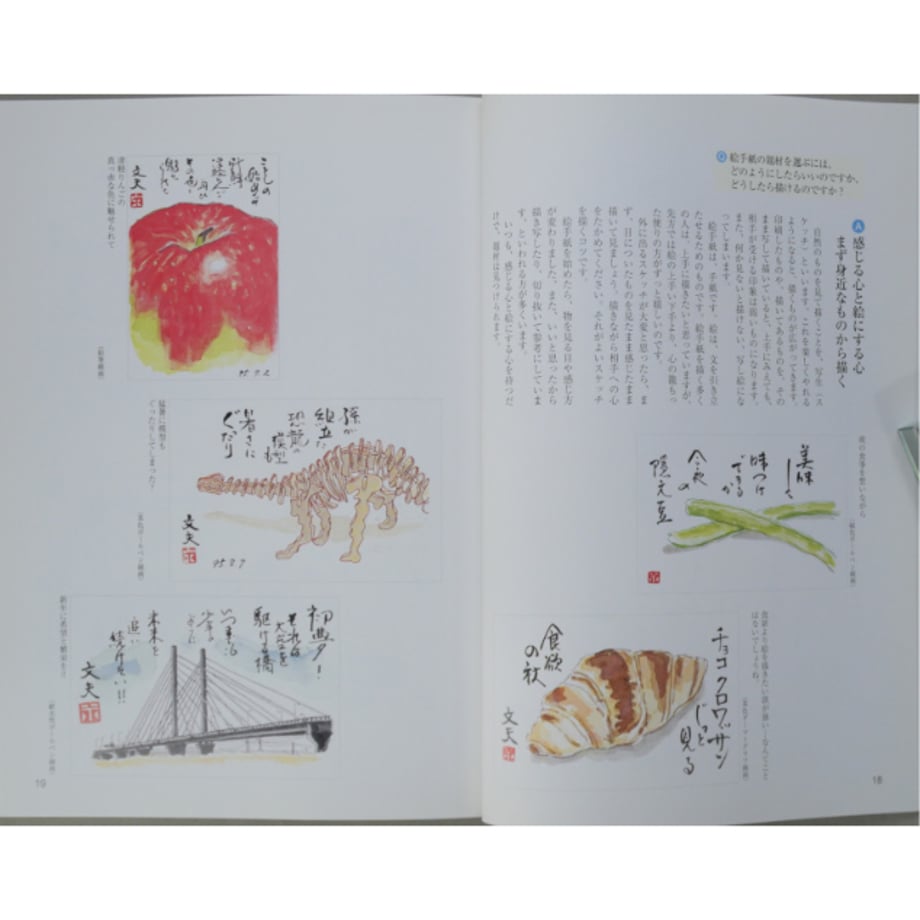 Q 絵手紙の題材を選ぶには、
どのようにしたらいいのですか。
どうしたら描けるのですか?
A 感じる心と絵にする心
まず身近なものから描く
自然のものを見て描くことを、写生(ス
ケッチ)といいます。これを楽しくやれる
ようになると、描くものが広がってきます。
印刷したものや、描いてあるものを、その
まま写して描いていると、上手にみえても、
相手が受ける印象は弱いものになります。
また、何か見ないと描けない、写し絵にな
ってしまいます。
絵手紙は、手紙です。絵は、文を引き立
たせるためのものです。絵手紙を描く多く
の人は、上手に描きたいと思っていますが、
先方では絵の上手い下手より、心の籠もっ
た便りの方がずっと嬉しいのです。
外に出るスケッチが大変と思ったら、ま
ず、目についたものを見たまま感じたまま
描いて見ましょう。描きながら相手への心
をたかめてください。それがよいスケッチ
を描くコツです。
絵手紙を始めたら、物を見る目や感じ方
が変わりました。また、いいと思ったから
描き写したり、切り抜いて参考にしていま
す、といわれる方が多くいます。
いつも、感じる心と絵にする心を持つだ
けで、題材は見つけられます。
夜の食事を想いながら
美味しく
味つけ
できるか
今夜の
隠元豆
食欲より絵を描きたい欲が強い…なんてこと
はないでしょうね。
チョコクロワッサン
じっと
見る
食欲
の秋
文夫
18
津軽りんごの
真っ赤な色に魅せられて
文夫
猛暑に模型も
ぐったりしてしまった?
孫が
組立た
恐龍の
模型も
暑さに
ぐたり
文夫
95 8 7
新年に希望と繁栄を!!
初夢!
それは
大空を
駆ける橋
いつまでも
未来を
追い
続けたい!!
文夫
19